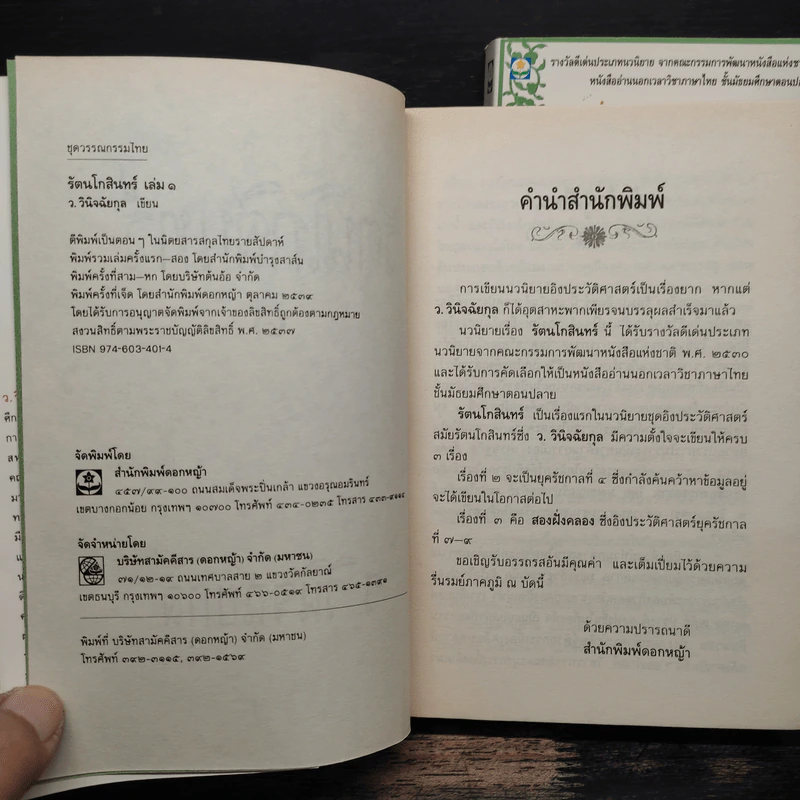 ชุดวรรณกรรมไทย
รัตนโกสินทร์ เล่ม ๑
ว.วินิจฉัยกุล เขียน
ตีพิมพ์เป็นตอน ๆ ในนิตยสารสกุลไทยรายสัปดาห์
พิมพ์รวมเล่มครั้งแรก–สอง โดยสำนักพิมพ์บำรุงสาส์น
พิมพ์ครั้งที่สาม–หก โดยบริษัทต้นอ้อ จำกัด
พิมพ์ครั้งที่เจ็ด โดยสำนักพิมพ์ดอกหญ้า ตุลาคม ๒๕๓๙
โดยได้รับการอนุญาตจัดพิมพ์จากเจ้าของลิขสิทธิ์ถูกต้องตามกฎหมาย
สงวนสิทธิ์ตามพระราชบัญญัติลิขสิทธิ์ พ.ศ. ๒๕๓๗
ISBN 974-603-401-4
จัดพิมพ์โดย
สำนักพิมพ์ดอกหญ้า
๔๕๗/๙๙-๑๐๐ ถนนสมเด็จพระปิ่นเกล้า แขวงอรุณอมรินทร์
เขตบางกอกน้อย กรุงเทพฯ ๑๐๗๐๐ โทรศัพท์ ๔๓๔-๐๒๓๕ โทรสาร
จัดจำหน่ายโดย
บริษัทสามัคคีสาร (ดอกหญ้า) จำกัด (มหาชน)
๗๑/๑๒-๑๙ ถนนเทศบาลสาย ๒ แขวงวัดกัลยาณ์
เขตธนบุรี กรุงเทพฯ ๑๐๖๐๐ โทรศัพท์ ๔๖๖-๐๕๑๙ โทรสาร ๔๖๕-๑๓๙๑
พิมพ์ที่ บริษัทสามัคคีสาร (ดอกหญ้า) จำกัด (มหาชน)
โทรศัพท์ ๓๙๒-๓๑๑๕, ๓๙๒-๑๕๖๙
รางวัลดีเด่นประเภทนวนิยาย จากคณะกรรมการพัฒนาหนังสือแห่งชา
หนังสืออ่านนอกเวลาวิชาภาษาไทย ชั้นมัธยมศึกษาตอนปล
คำนำสำนักพิมพ์
การเขียนนวนิยายอิงประวัติศาสตร์เป็นเรื่องยาก หากแต่
ว.วินิจฉัยกุล ก็ได้อุตสาหะพากเพียรจนบรรลุผลสำเร็จมาแล้ว
นวนิยายเรื่อง รัตนโกสินทร์ นี้ ได้รับรางวัลดีเด่นประเภท
นวนิยายจากคณะกรรมการพัฒนาหนังสือแห่งชาติ พ.ศ. ๒๕๓๐
และได้รับการคัดเลือกให้เป็นหนังสืออ่านนอกเวลาวิชาภาษาไทย
ชั้นมัธยมศึกษาตอนปลาย
รัตนโกสินทร์ เป็นเรื่องแรกในนวนิยายชุดอิงประวัติศาสตร์
สมัยรัตนโกสินทร์ซึ่ง ว. วินิจฉัยกุล มีความตั้งใจจะเขียนให้ครบ
๓ เรื่อง
เรื่องที่ ๒ จะเป็นยุครัชกาลที่ ๔ ซึ่งกำลังค้นคว้าหาข้อมูลอยู่
จะได้เขียนในโอกาสต่อไป
เรื่องที่ ๓ คือ สองฝั่งคลอง ซึ่งอิงประวัติศาสตร์ยุครัชกาล
ที่ ๗–๙
ขอเชิญรับอรรถรสอันมีคุณค่า และเต็มเปี่ยมไว้ด้วยความ
รื่นรมย์ภาคภูมิ ณ บัดนี้
ด้วยความปรารถนาดี
สำนักพิมพ์ดอกหญ้า